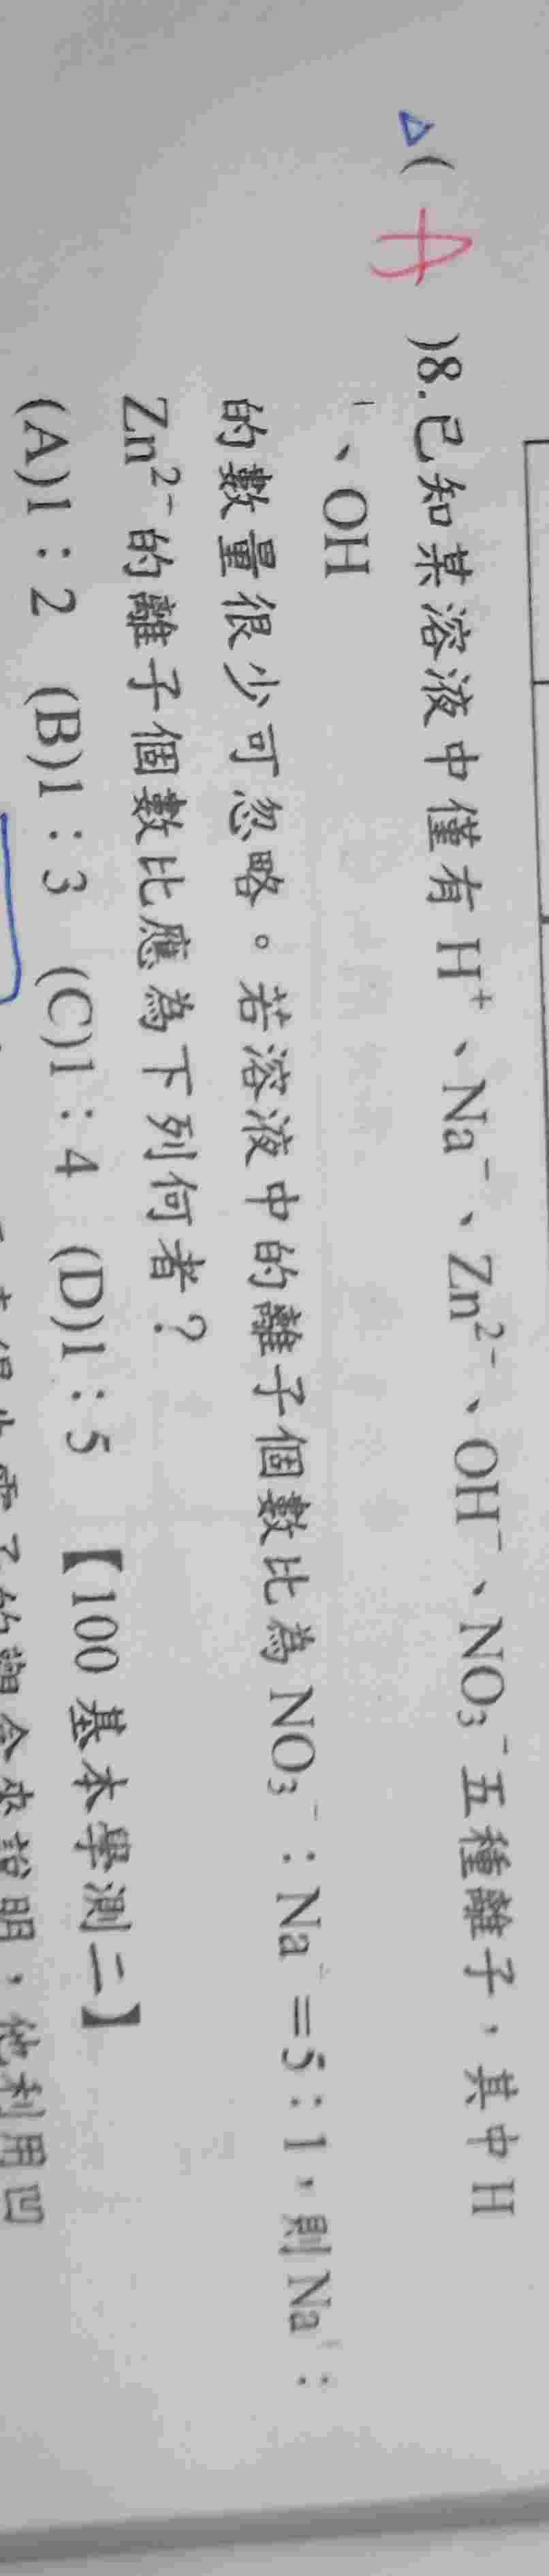 △( A )8.已知某溶液中僅有 H⁺、Na⁻、Zn²⁻、OH⁻、NO₃⁻五種離子，其中 H
⁺、OH
的數量很少可忽略。若溶液中的離子個數比為 NO₃⁻：Na⁺=5：1，則 Na⁺：
Zn²⁻的離子個數比應為下列何者？
(A)1：2 (B)1：3 (C)1：4 (D)1：5 【100 基本學測二】